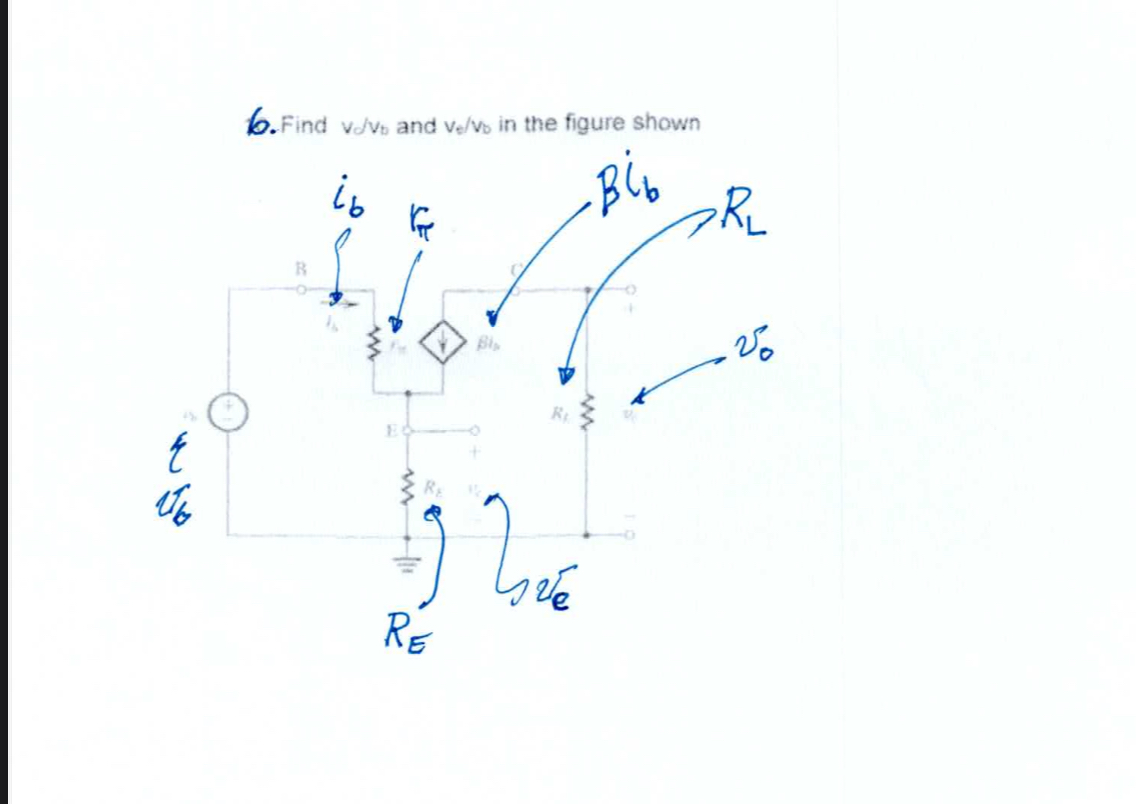 6. Find vₒ/v_b and vₑ/v_b in the figure shown
i_b
r_π
βi_b
R_L
B
C
i_b
r_π
βi_b
+
v_o
R_L
+
-
E
+
v_b
R_E
v_e
-
R_E